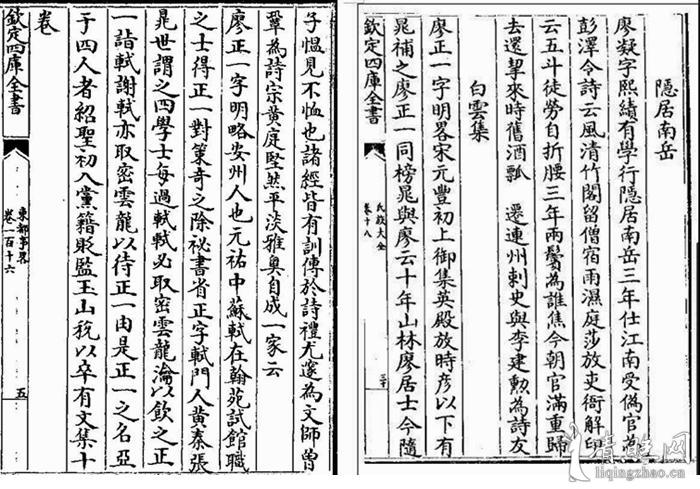 隱居南岳
廖凝字熙績有學行隱居南岳三年仕江南受偽官為
彭澤令詩云風清竹閣留僧宿雨濕庭莎放吏衙解印
云五斗徒勞自折腰三年兩鬢為誰焦今朝官滿重歸
去還挈來時舊酒瓢　遷連州刺史與李建勲為詩友
白雲集
廖正一字明畧宋元豐初上御集英殿放時彦以下有
晁補之廖正一同榜晁與廖云十年山林廖居士今隨
欽定四庫全書
氏族大全
卷十八
三十
子愠見不恤也諸經皆有訓傳於詩禮尤邃為文師曾
鞏為詩宗黄庭堅然平淡雅奥自成一家云
廖正一字明略安州人也元祐中蘇軾在翰苑試館職
之士得正一對策奇之除祕書省正字軾門人黄秦張
晁世謂之四學士每過軾軾必取密雲龍瀹以飲之正
一詣軾謝軾亦取密雲龍以待正一由是正一之名亞
于四人者紹聖初入黨籍貶監玉山稅以卒有文集十
卷
欽定四庫全書
東都事略
卷一百十六
五
清照网
liqingzhao.cn